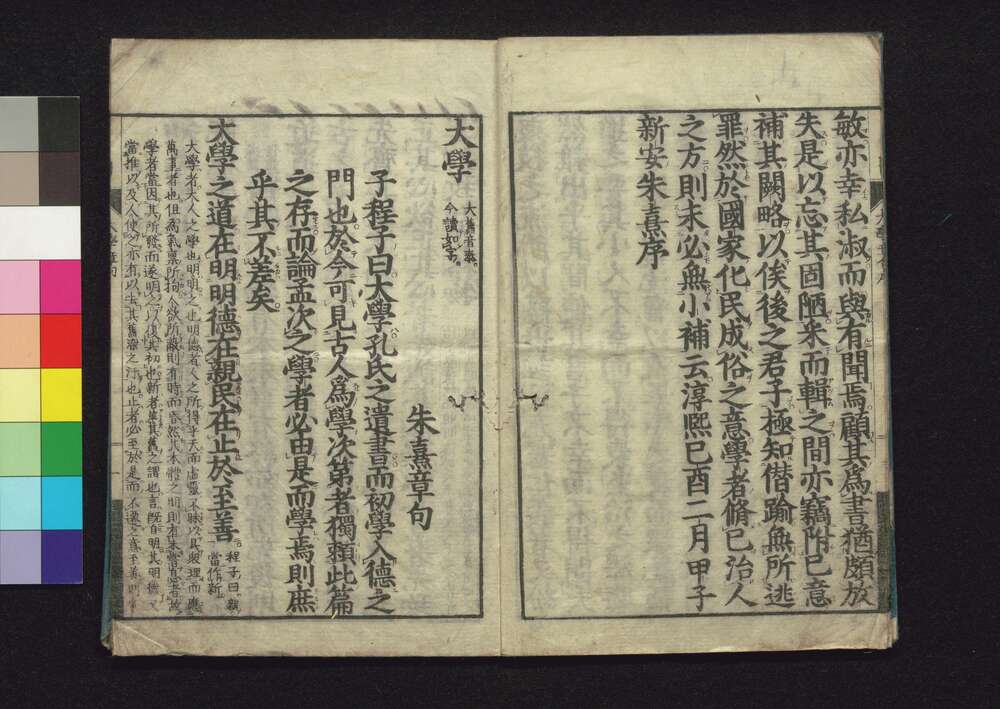 敏亦幸私淑而與有聞焉顧其爲書猶頗放
失是以忘其固陋釆而輯之間亦竊附己意
補其闕略以俟後之君子極知僭踰無所逃
罪然於國家化民成俗之意學者脩己治人
之方則未必無小補云淳熈己酉二月甲子
新安朱熹序
大學
大舊音泰
今讀如字
朱熹章句
子程子曰大學孔氏之遺書而初學入德之
門也於今可見古人爲學次第者獨頼此篇
之存而論孟次之學者必由是而學焉則庶
乎其不差矣
大學之道在明明德在親民在止於至善
程子曰親
當作新
大學者大人之學也明明之也明德者人之所得乎天而虛靈不昧以具衆理而應
萬事者也但爲氣稟所拘人欲所蔽則有時而昏然其本體之明則有未嘗息者故
學者當因其所發而遂明之以復其初也新者革其舊之謂也言既自明其明德又
當推以及人使之亦有以去其舊染之汙也止者必至於是而不遷之意至善則